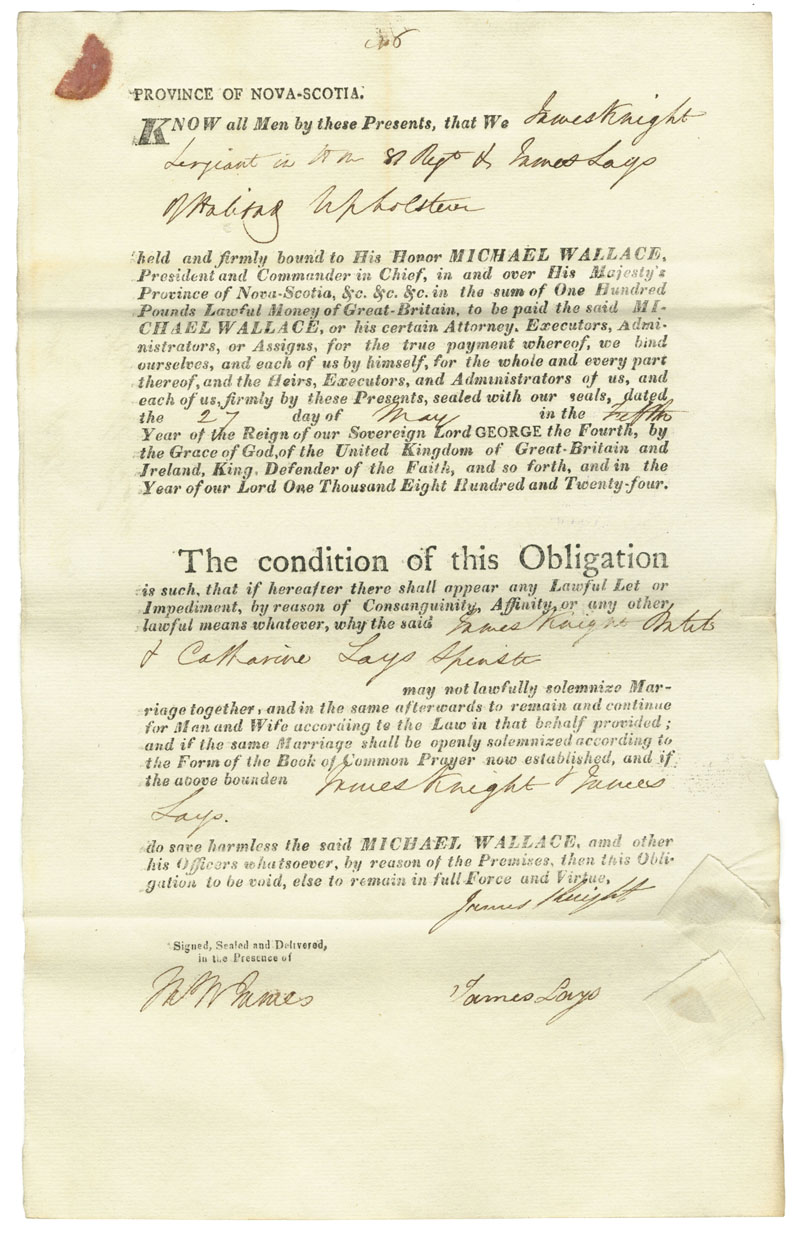 No 8
PROVINCE OF NOVA-SCOTIA.
KNOW all Men by these Presents, that We James Knight
Sergiant in H M 81 Regt & James Lays
of Halifax Upholsterer
held and firmly bound to His Honor MICHAEL WALLACE,
President and Commander in Chief, in and over His Majesty's
Province of Nova-Scotia, &c. &c. &c. in the sum of One Hundred
Pounds Lawful Money of Great-Britain, to be paid the said MI-
CHAEL WALLACE, or his certain Attorney. Executors, Admi-
nistrators, or Assigns, for the true payment whereof, we bind
ourselves, and each of us by himself, for the whole and every part
thereof, and the Heirs, Executors, and Administrators of us, and
each of us, firmly by these Presents, sealed with our seals, dated
the 27 day of May in the Fifth
Year of the Reign of our Sovereign Lord GEORGE the Fourth, by
the Grace of God, of the United Kingdom of Great-Britain and
Ireland, King, Defender of the Faith, and so forth, and in the
Year of our Lord One Thousand Eight Hundred and Twenty-four.
The condition of this Obligation
is such, that if hereafter there shall appear any Lawful Let or
Impediment, by reason of Consanguinity, Affinity, or any other
lawful means whatever, why the said James Knight
& Catharine Lays Spinster
may not lawfully solemnize Mar-
riage together, and in the same afterwards to remain and continue
for Man and Wife according to the Law in that behalf provided;
and if the same Marriage shall be openly solemnized according to
the Form of the Book of Common Prayer now established, and if
the above bounden James Knight & James
Lays.
do save harmless the said MICHAEL WALLACE, amd other
his Officers whatsoever, by reason of the Premises, then this Obli-
gation to be void, else to remain in full Force and Virtue,
James Knight
Signed, Sealed and Delivered,
in the Presence of
James Lays